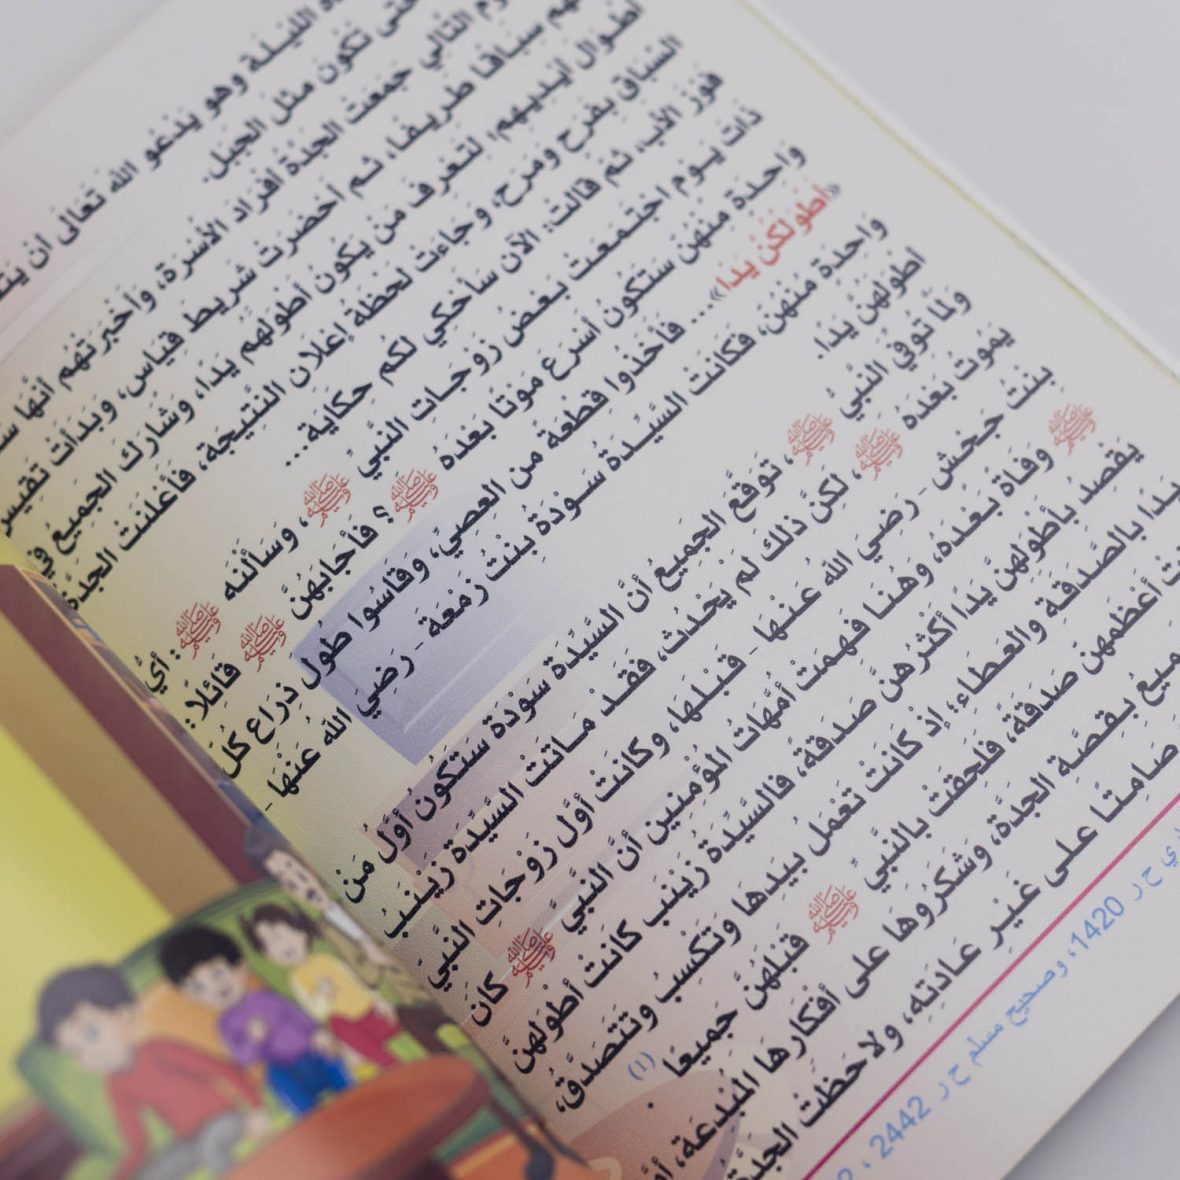 الليلة وهو يَدْعُو الله تَعَالَى أن
حتى تكُون مثل الجبل.
التَّالي جَمَعتْ الجَدَّة أفْرَاد الأسْرَة، وَأخْبرَتهُم أنَّهَا
سِبَاقًا طَريفًا، ثم أحْضَرتْ شَريطَ قِيَاس، وَبَدأتْ تَقيس
أطْوال أيْدِيهِم؛ لتَعْرِفَ مَنْ يَكُون أطولهُم يَدًا، وَشَارَكَ الجَميعُ في
السِّبَاق بفَرَح وَمَرَح، وَجَاءَتْ لَحظَة إعْلَان النَّتيجَة، فَأعْلنَتْ الجَدَّة
فَوْزَ الأب، ثمَّ قَالتْ: الآن سَأحْكي لكُم حِكَايَة...
ذَاتَ يَـوْم اجْتَمَعتْ بَعْضُ زَوْجَـاتِ النَّبيِّ ﷺ، وَسَألْنَه ﷺ: أيُّ
وَاحِـدَة منْهُن سَتَكُونُ أسْرَعَ مَوْتًا بَعْدَه ﷺ؟ فَأجَابهُنَّ ﷺ قَائِلًا:
«أطْوَلكُنَّ يَدًا»... فَأخَذُوا قِطْعَةً من العصِيِّ، وقَاسُوا طُولَ ذِرَاع كُلِّ
وَاحِدَة منْهُن، فَكَانَتْ السَّيِّدَة سَوْدَةُ بِنْتُ زَمْعَةَ - رَضِيَ الله عَنهَا -
أطْوَلَهُنَّ يَدًا.
وَلمَّا تُوفِّيَ النَّبيُّ ﷺ، تَوقَّعَ الجَمِيعُ أنَّ السَّيِّدَة سَوْدَة سَتَكُونُ أوَّلُ مَنْ
يَمُوتُ بَعْدَه ﷺ، لكِنَّ ذلكَ لَمْ يَحْدُث، فَقَـدْ مـاتَتْ السَّيِّدَة زَيْنَبَ
بِنْتُ جَـحْش - رَضِيَ الله عَنْهَا - قَبْلَها، وكانَتْ أوَّل زَوْجَاتِ النَّبيِّ
ﷺ وَفَاةً بَعْدَهُ، وَهُنا فَهِمَتْ أمَّهَاتُ المُؤمِنِين أنَّ النَّبيَّ ﷺ كَانَ
يَقْصِدُ بأطوَلهنَّ يَدًا أكْثَرَهُنَّ صدَقَة، فَالسَّيِّدَةُ زَيْنَب كانَتْ أطولَهنَّ
يَدًا بالصَّدَقَـةِ والعَطَاءِ؛ إذْ كَانَتْ تَعْمَلُ بيَدِهَا وَتَكْسِبُ وَتَتَصَدَّقُ،
أعْظَمَهنَّ صَدَقةً، فلَحقَتْ بالنَّبيِّ ﷺ قَبْلَهُنَّ جَمِيعًا. (١)
بِـقِصَّة الجَدَّة، وَشَكَرُوهَا على أفْكارهَا المُبْدعَة،
صَامِتًا على غَيْرِ عَادَتِهِ، ولاحَظَتْ الجَدَّةُ
ح ر 1420، وصحيح مسلم ح ر 2442 ،